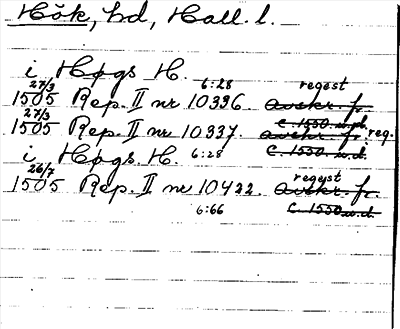 Hök, hd, Hall. l.
i Høgs H.
27/3 6:28 regest
1505 Rep. II nr 10336. avskr. fr.
27/3 c. 1550 u.d.
1505 Rep. II nr 10337. avskr. fr. reg.
i Høgs. H. 6:28 c. 1550 u.d.
26/7 regest
1505 Rep. II nr 10422. avskr. fr.
6:66 c. 1550 u.d.